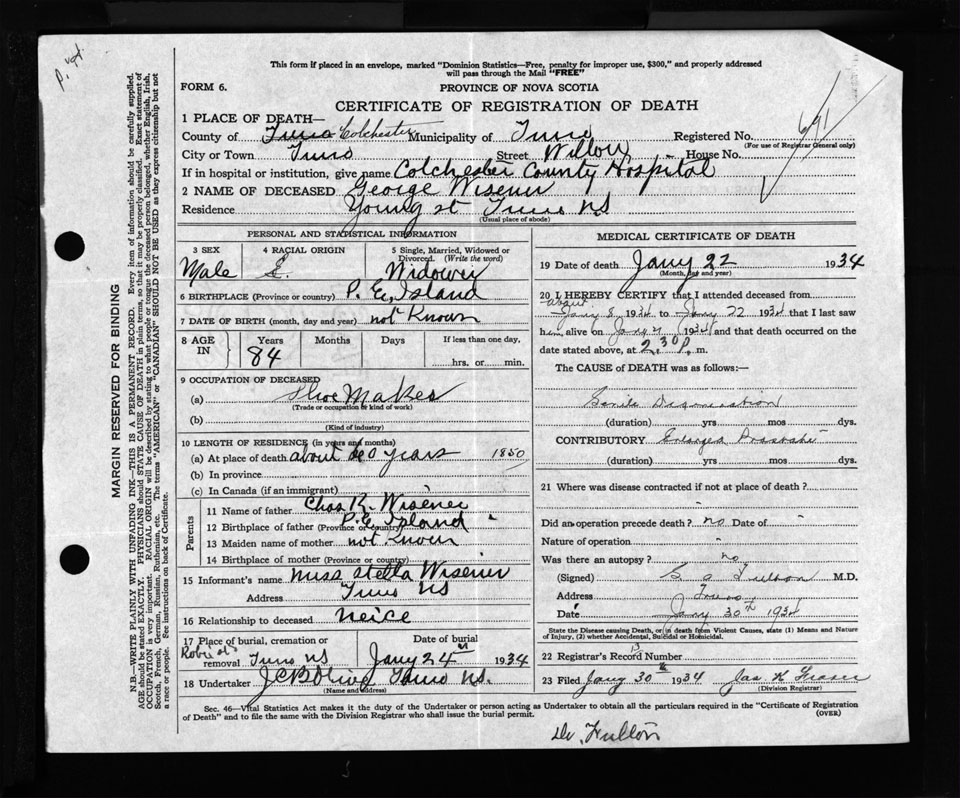 P. yst.
This form if placed in an envelope, marked "Dominion Statistics—Free, penalty for improper use, $300," and properly addressed
will pass through the Mail "FREE"
FORM 6.
PROVINCE OF NOVA SCOTIA
CERTIFICATE OF REGISTRATION OF DEATH
1 PLACE OF DEATH—
County of Truro Colchester Municipality of Truro Registered No. 691
(For use of Registrar General only)
City or Town Truro Street Willow House No.
If in hospital or institution, give name Colchester County Hospital
2 NAME OF DECEASED George Wisener
Residence Young st Truro NS
(Usual place of abode)
PERSONAL AND STATISTICAL INFORMATION
3 SEX Male
4 RACIAL ORIGIN E.
5 Single, Married, Widowed or
Divorced. (Write the word)
Widower
6 BIRTHPLACE (Province or country) P. E. Island
7 DATE OF BIRTH (month, day and year) not Known
8 AGE IN Years Months Days If less than one day,
84 hrs. or min.
9 OCCUPATION OF DECEASED
(a) Shoe Maker
(Trade or occupation or kind of work)
(b)
(Kind of industry)
10 LENGTH OF RESIDENCE (in years and months)
(a) At place of death about 60 years 1850
(b) In province
(c) In Canada (if an immigrant)
Parents
11 Name of father Chas R. Wisener
12 Birthplace of father (Province or country) P.E. Island "
13 Maiden name of mother not Known
14 Birthplace of mother (Province or country)
15 Informant's name Miss Stella Wisener
Address Truro NS
16 Relationship to deceased Neice
17 Place of burial, cremation or Date of burial
removal Truro NS Jany 24 1934
18 Undertaker Truro NS.
(Name and address)
MEDICAL CERTIFICATE OF DEATH
19 Date of death Jany 22 1934
(Month, day and year)
20 I HEREBY CERTIFY that I attended deceased from
about
Jany 8 1934 to Jany 22 1934 that I last saw
him alive on 1934 and that death occurred on
date stated above, at 2.30 p. m.
The CAUSE of DEATH was as follows:—
Senile
(duration) yrs mos dys.
CONTRIBUTORY Enlarged Prostate
(duration) yrs. mos dys.
21 Where was disease contracted if not at place of death?
Did an operation precede death? no Date of "
Nature of operation "
Was there an autopsy? no
(Signed) Fulton M.D.
Address Truro
Date Jany 30th 1934
State the Disease causing Death, or in death from Violent Causes, state (1) Means and Nature
of Injury, (2) whether Accidental, Suicidal or Homicidal.
22 Registrar's Record Number 13
23 Filed Jany 30th 1934 Jas K Fraser
(Division Registrar)
Sec. 46—Vital Statistics Act makes it the duty of the Undertaker or person acting as Undertaker to obtain all the particulars required in the "Certificate of Registration
of Death" and to file the same with the Division Registrar who shall issue the burial permit.
(OVER)
Dr. Fulton
MARGIN RESERVED FOR BINDING
N.B.—WRITE PLAINLY WITH UNFADING INK—THIS IS A PERMANENT RECORD. Every item of information should be carefully supplied.
AGE should be stated EXACTLY. PHYSICIANS should STATE CAUSE OF DEATH in plain terms, so that it may be properly classified. Exact statement of
OCCUPATION is very important. RACIAL ORIGIN will be described by stating to what people or tongue the deceased person belonged, whether English, Irish,
Scotch, French, German, Russian, Ruthenian, etc. The terms "AMERICAN" or "CANADIAN" SHOULD NOT BE USED as they express citizenship but not
a race or people. See instructions on back of Certificate.